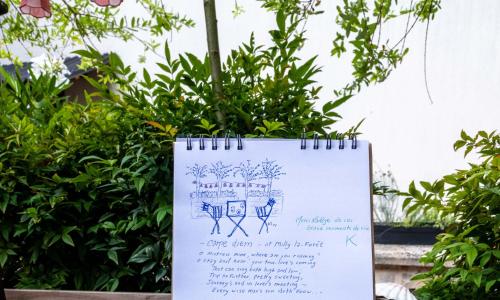 - Carpe diem - at Milly la Forêt
O mistress mine, where are you roaming?
O stay and hear your true love's coming
That can sing both high and low;
Trip no further pretty sweeting,
Journeys end in lovers meeting -
Every wise man's son doth know...
de ces
beaux moments de vie
K